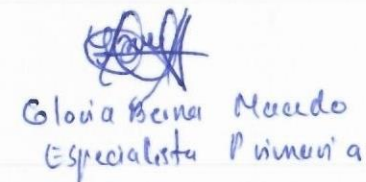 Gloria Berna Macedo
Especialista Primaria